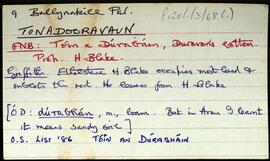 9 Ballynakill Pal. P120/1/3/68(1)
TONADOORAVAUN
ONB: Tóin a Dúrabáin, Duravan's bottom.
Prop. H Blake.
Griffith H Blake occupies most land &
sublets the rest. He leases from H Blake
[Ó D: dúrabhán, m., loam. But in Aran I learnt
it means sandy soil]
O.S. LIST '86 TÓIN AN DÚRABHÁIN